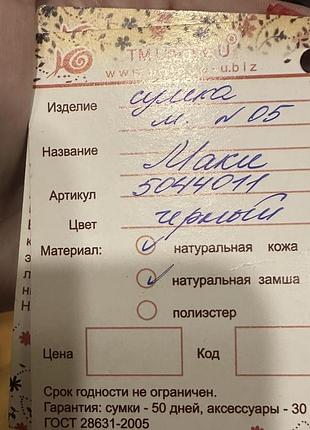 Изделие сумка
м. N 05
Название Маки
Артикул 5044011
Цвет черный
Материал: натуральная кожа
натуральная замша
полиэстер
Цена Код
Срок годности не ограничен.
Гарантия: сумки - 50 дней, аксессуары - 30
ГОСТ 28631-2005